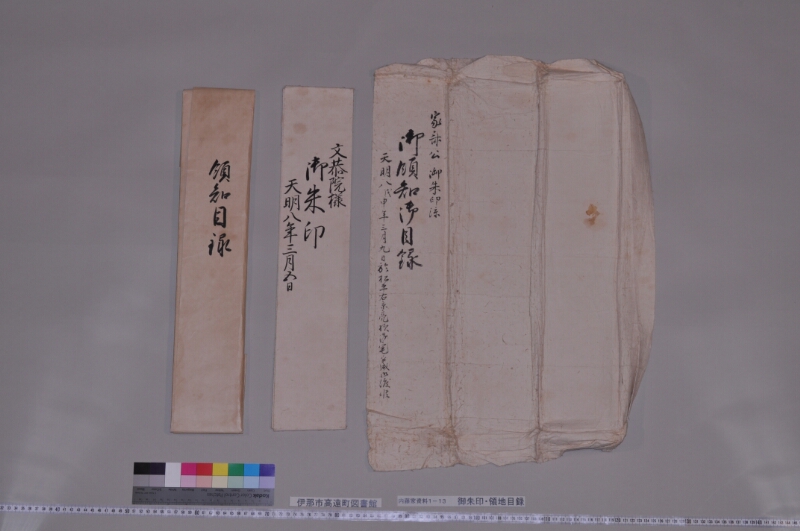 家斉公 御朱印添
御領知御目録
天明八戊申年三月九日於
文恭院様
御朱印
天明八年三月五日
領知目録
伊那市高遠町図書館
内藤家資料1-13 御朱印・領地目録